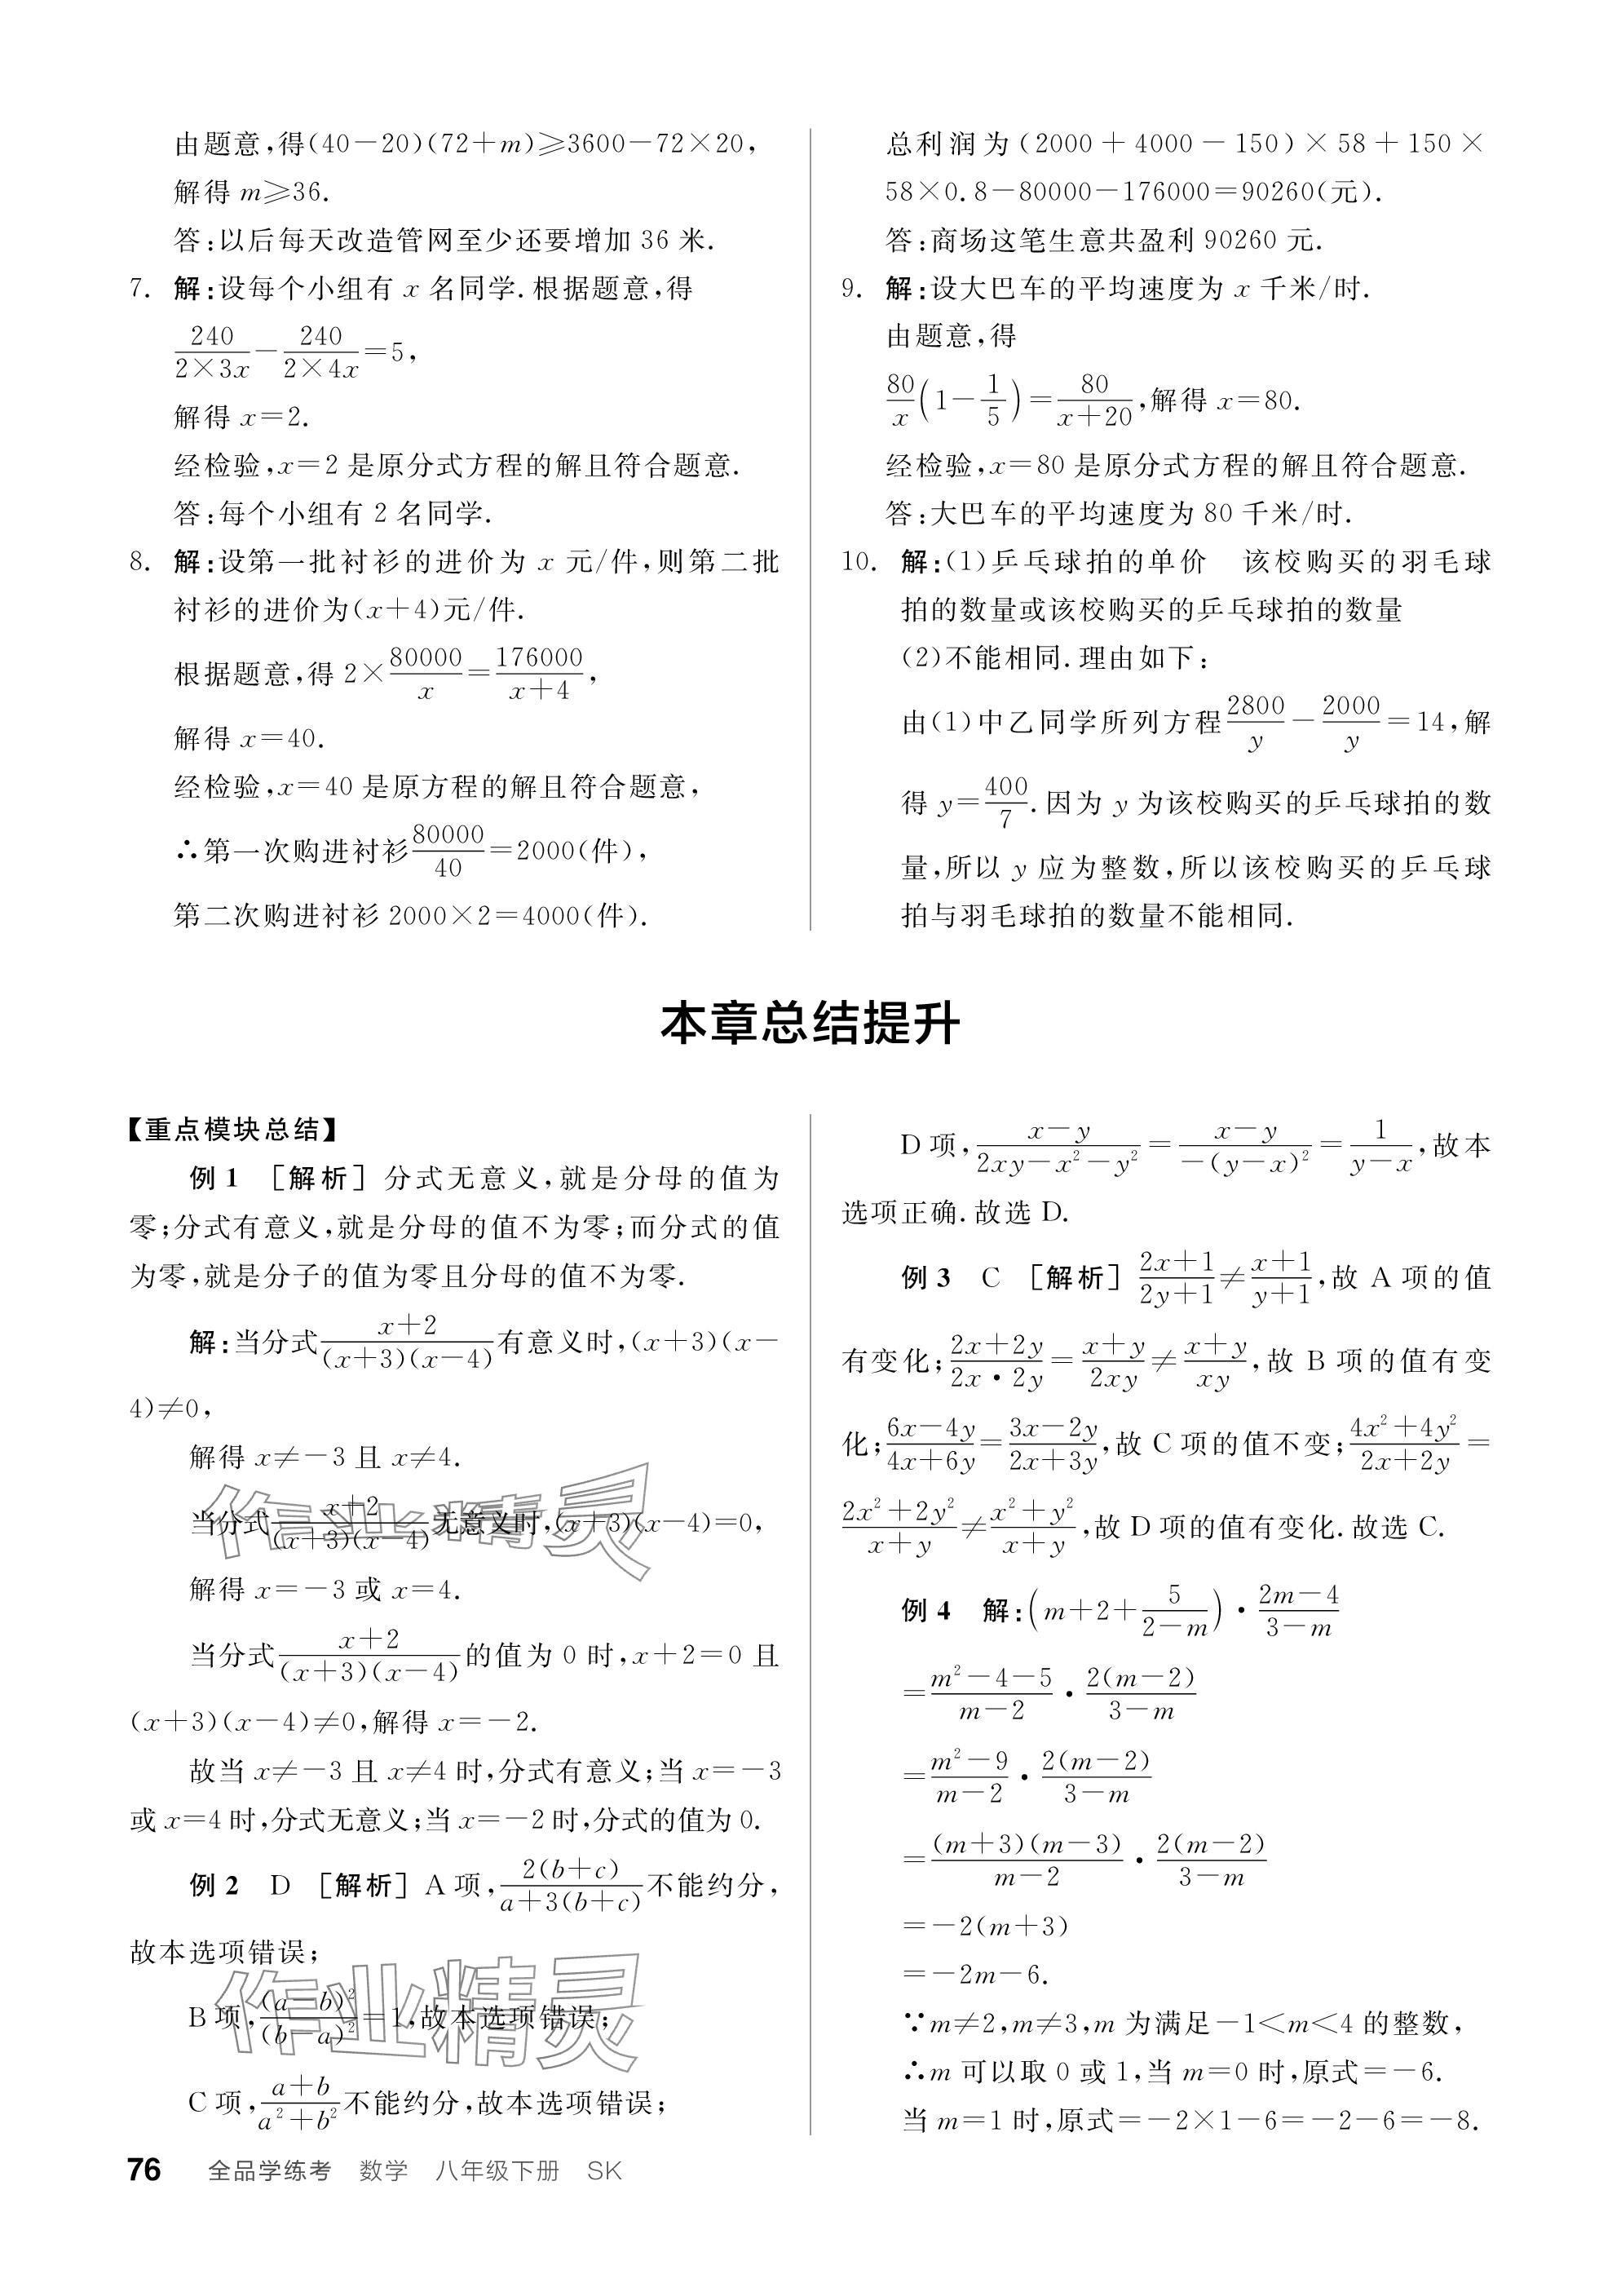 由题意,得(40-20)(72+m)≥3600-72×20,
解得 m≥36.
答:以后每天改造管网至少还要增加 36 米.
7. 解:设每个小组有 x 名同学.根据题意,得
240/(2×3x)-240/(2×4x)=5,
解得 x=2.
经检验,x=2 是原分式方程的解且符合题意.
答:每个小组有 2 名同学.
8. 解:设第一批衬衫的进价为 x 元/件,则第二批
衬衫的进价为(x+4)元/件.
根据题意,得 2×80000/x=176000/(x+4),
解得 x=40.
经检验,x=40 是原方程的解且符合题意,
∴第一次购进衬衫80000/40=2000(件),
第二次购进衬衫 2000×2=4000(件).
总利润为(2000+4000-150)×58+150×
58×0.8-80000-176000=90260(元).
答:商场这笔生意共盈利 90260 元.
9. 解:设大巴车的平均速度为 x 千米/时.
由题意,得
80/x(1-1/5)=80/(x+20),解得 x=80.
经检验,x=80 是原分式方程的解且符合题意.
答:大巴车的平均速度为 80 千米/时.
10. 解:(1)乒乓球拍的单价 该校购买的羽毛球
拍的数量或该校购买的乒乓球拍的数量
(2)不能相同.理由如下:
由(1)中乙同学所列方程2800/y-2000/y=14,解
得 y=400/7.因为 y 为该校购买的乒乓球拍的数
量,所以 y 应为整数,所以该校购买的乒乓球
拍与羽毛球拍的数量不能相同.
本章总结提升
【重点模块总结】
例 1 [解析] 分式无意义,就是分母的值为
零;分式有意义,就是分母的值不为零;而分式的值
为零,就是分子的值为零且分母的值不为零.
解:当分式(x+2)/((x+3)(x-4))有意义时,(x+3)(x-
4)≠0,
解得 x≠-3 且 x≠4.
当分式(x+2)/((x+3)(x-4))无意义时,(x+3)(x-4)=0,
解得 x=-3 或 x=4.
当分式(x+2)/((x+3)(x-4))的值为 0 时,x+2=0 且
(x+3)(x-4)≠0,解得 x=-2.
故当 x≠-3 且 x≠4 时,分式有意义;当 x=-3
或 x=4 时,分式无意义;当 x=-2 时,分式的值为 0.
例 2 D [解析] A 项,2(b+c)/(a+3(b+c))不能约分,
故本选项错误;
B 项,(a-b)²/(b-a)²=1,故本选项错误;
C 项,(a+b)/(a²+b²)不能约分,故本选项错误;
D 项,(x-y)/(2xy-x²-y²)=(x-y)/(-(y-x)²)=1/(y-x),故本
选项正确.故选 D.
例 3 C [解析] (2x+1)/(2y+1)≠(x+1)/(y+1),故 A 项的值
有变化;(2x+2y)/(2x·2y)=(x+y)/(2xy)≠(x+y)/(xy),故 B 项的值有变
化;(6x-4y)/(4x+6y)=(3x-2y)/(2x+3y),故 C 项的值不变;(4x²+4y²)/(2x+2y)=
(2x²+2y²)/(x+y)≠(x²+y²)/(x+y),故 D 项的值有变化.故选 C.
例 4 解:(m+2+5/(2-m))·(2m-4)/(3-m)
=(m²-4-5)/(m-2)·2(m-2)/(3-m)
=(m²-9)/(m-2)·2(m-2)/(3-m)
=(m+3)(m-3)/(m-2)·2(m-2)/(3-m)
=-2(m+3)
=-2m-6.
∵m≠2,m≠3,m 为满足-1<m<4 的整数,
∴m 可以取 0 或 1,当 m=0 时,原式=-6.
当 m=1 时,原式=-2×1-6=-2-6=-8.
作业精灵
作业精灵
76 全品学练考 数学 八年级下册 SK